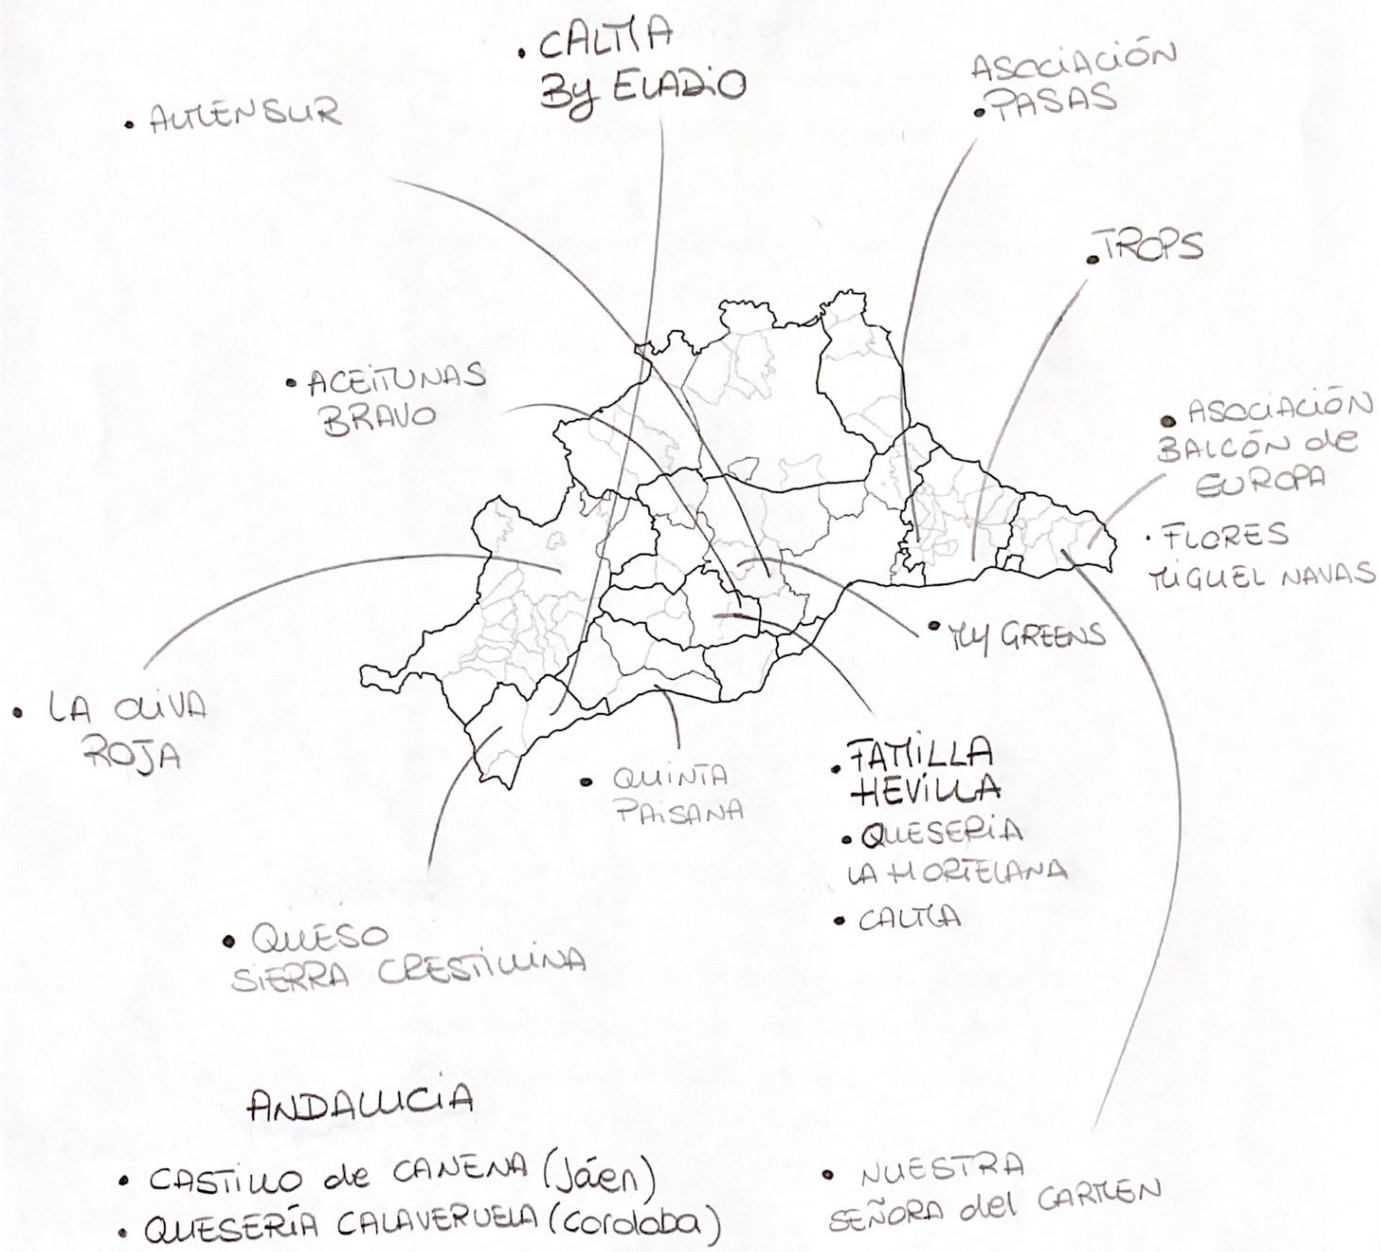 • CALMA
By ELADiO
ASOCiACiÓN
• PASAS
• ALMENSUR
• TROPS
• ACEITUNAS
BRAVO
• ASOCiACiÓN
BALCÓN de
EUROPA
• FLORES
MIGUEL NAVAS
• MY GREENS
• LA OLIVA
ROJA
• QUINTA
PAiSANA
• FAMILIA
HEVILLA
• QUESERiA
LA HORTELANA
• CALMA
• QUESO
SiERRA CRESTELLINA
ANDALUCiA
• CASTILLO de CANENA (Jáen)
• QUESERÍA CALAVERUELA (Cordoba)
• NUESTRA
SEÑORA del CARMEN